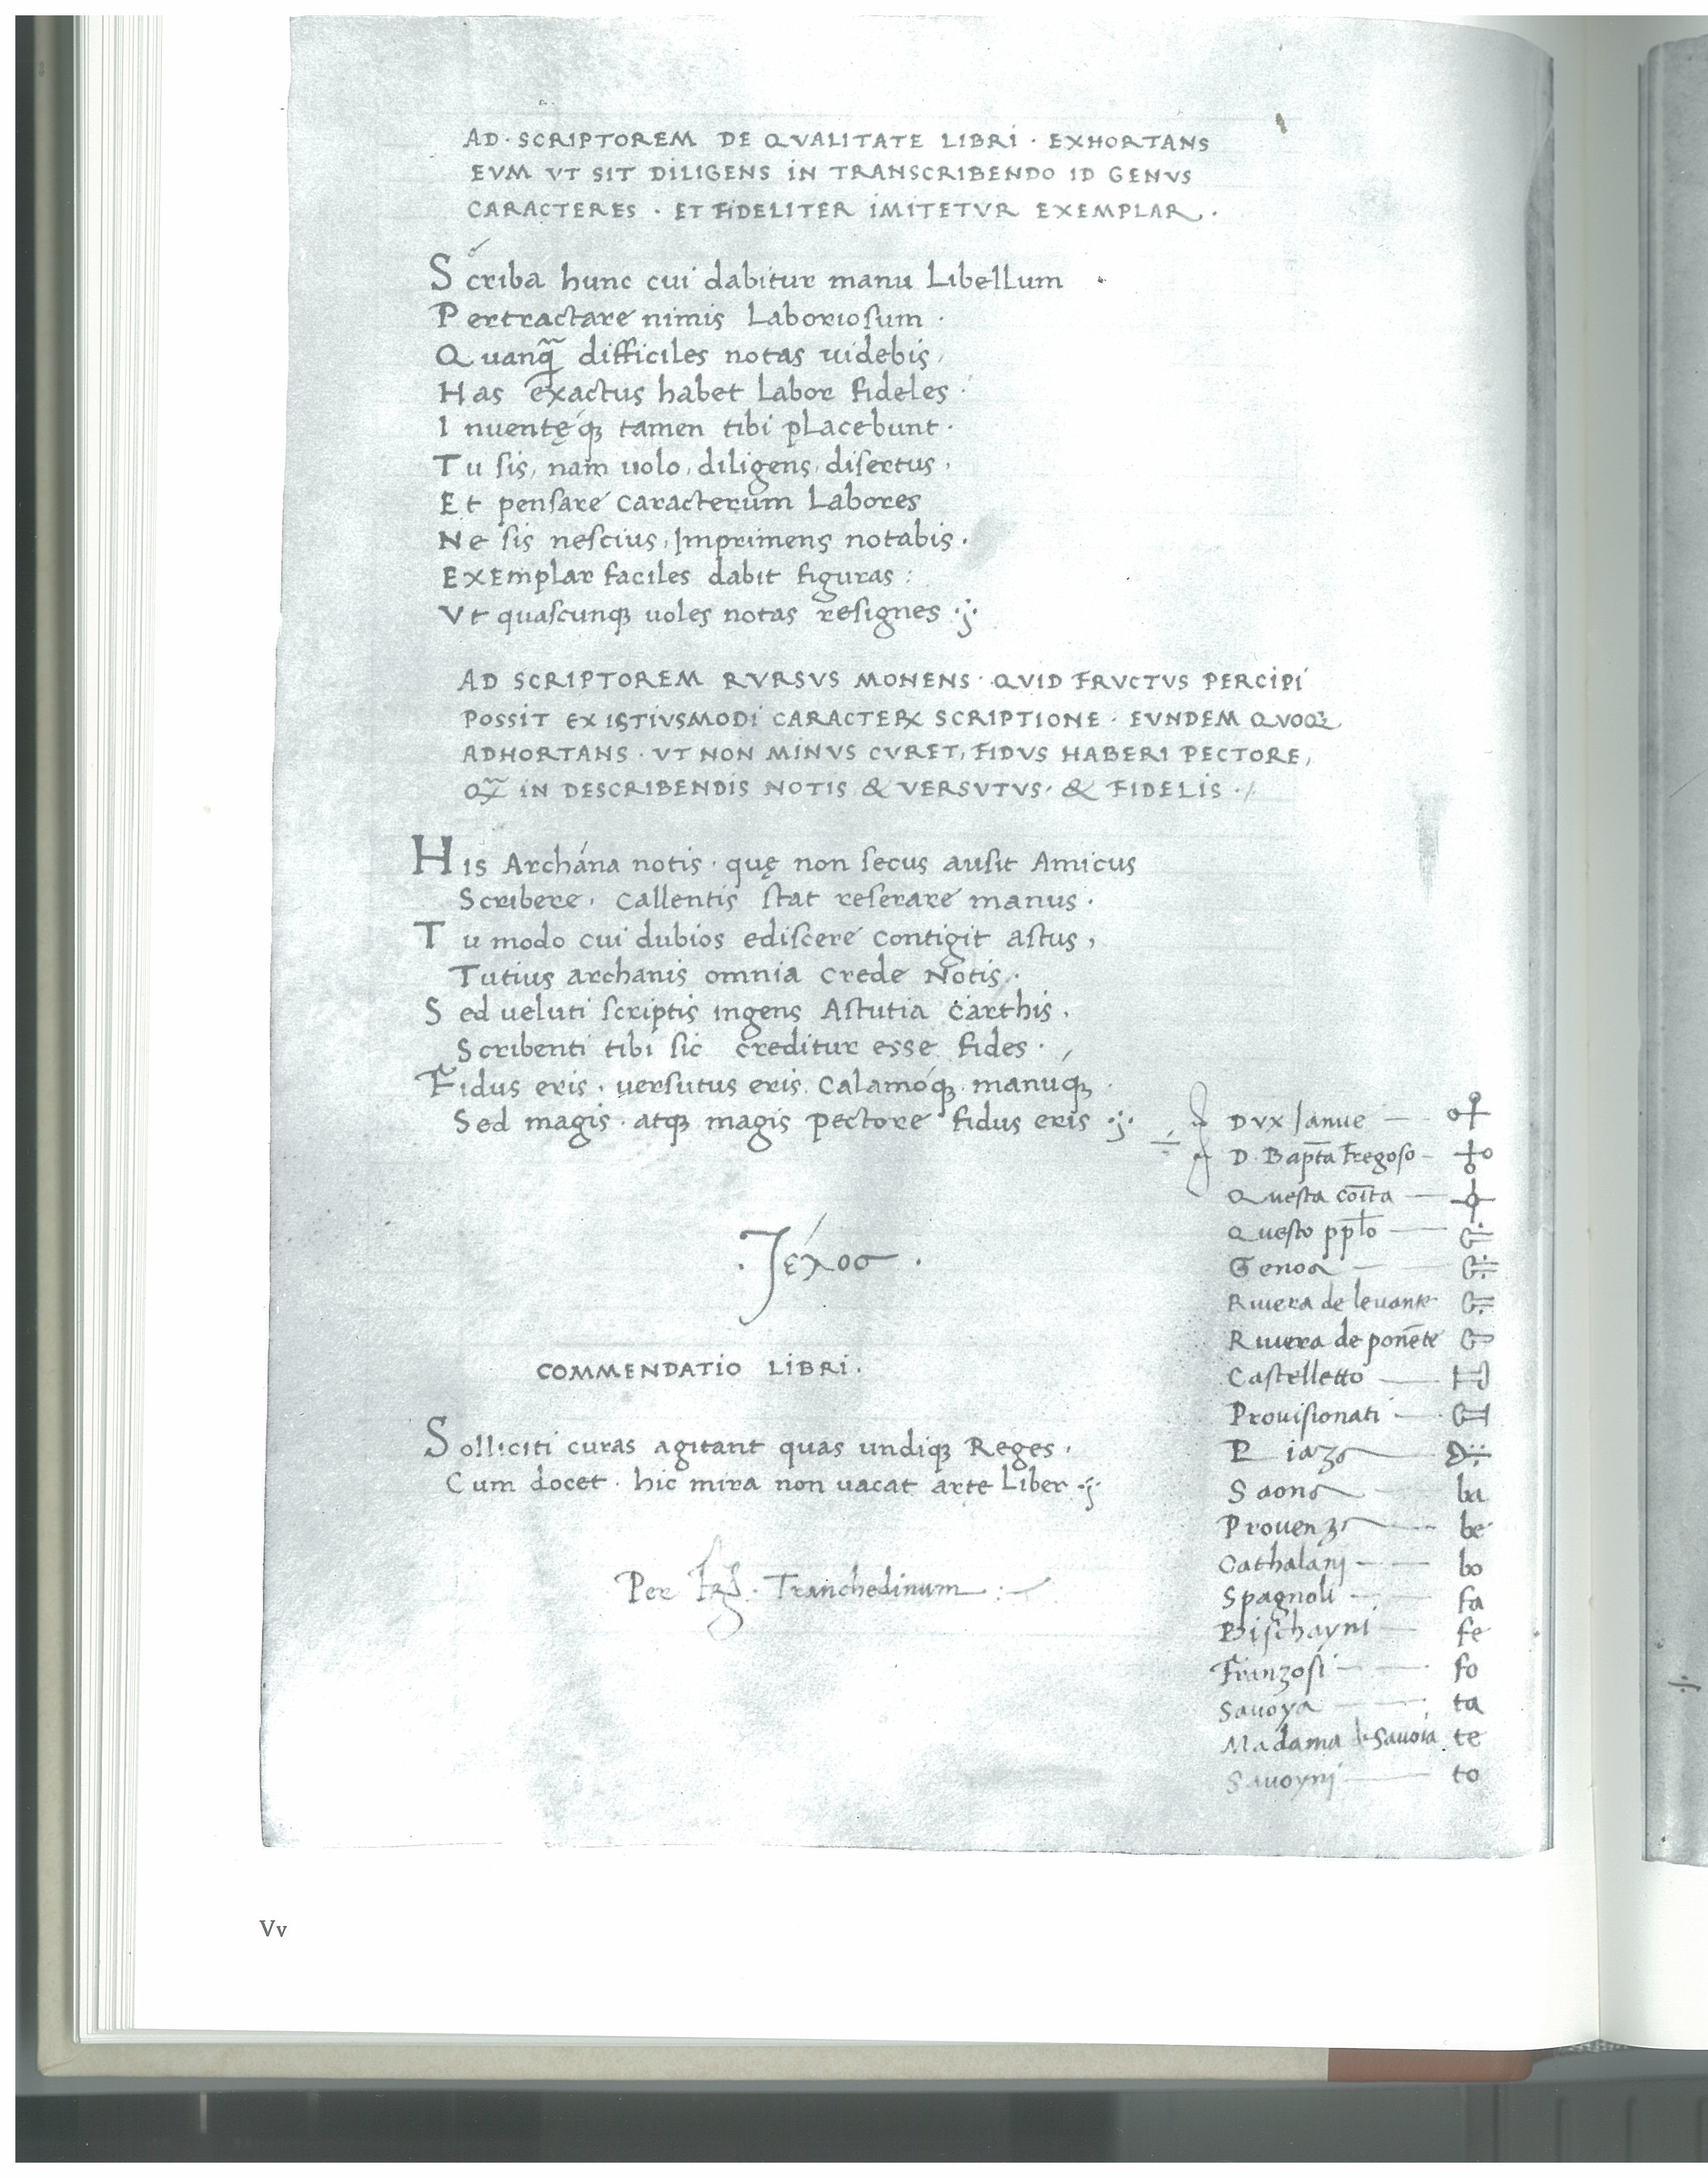 AD · SCRIPTOREM DE QVALITATE LIBRI · EXHORTANS
EVM VT SIT DILIGENS IN TRANSCRIBENDO ID GENVS
CARACTERES · ET FIDELITER IMITETVR EXEMPLAR ·
Scriba hunc cui dabitur manu Libellum
Pertractare nimis Laboriosum ·
Quanq̃ difficiles notas uidebis,
Has exactus habet Labor fideles ·
Inuentęq; tamen tibi placebunt ·
Tu sis, nam uolo, diligens, disertus,
Et pensare caracterum Labores
Ne sis nescius, Imprimens notabis ·
Exemplar faciles dabit figuras :
Vt quascunq; uoles notas resignes ·;·
AD SCRIPTOREM RVRSVS MONENS · QVID FRVCTVS PERCIPI
POSSIT EX ISTIVSMODI CARACTERꝜ SCRIPTIONE · EVNDEM QVOQ;
ADHORTANS · VT NON MINVS CVRET, FIDVS HABERI PECTORE,
IN DESCRIBENDIS NOTIS & VERSVTVS · & FIDELIS ·/
His Archána notis · quę non secus ausit Amicus
Scribere, callentis stat reserare manus ·
Tu modo cui dubios ediscere contigit astus,
Tutius archanis omnia crede Notis ·
Sed ueluti scriptis ingens Astutia carthis,
Scribenti tibi sic creditur esse fides ·
Fidus eris, uersutus eris, calamóq; manuq; ·
Sed magis · atq; magis pectore fidus eris ·;·
· Τέλοσ ·
COMMENDATIO LIBRI ·
Solliciti curas agitant quas undiq; Reges ·
Cum docet · hic mira non uacat arte Liber ·;·
Per · Tranchedinum :
Dvx Ianue —
D. Bap̄ta Fregoso —
Questa cōita —
Questo pplo —
Genoa —
Riuera de leuante
Riuera de ponēte
Castelletto —
Prouisionati —
Saona — ba
Prouenza — be
Cathalanj — bo
Spagnoli — fa
Bischayni — fe
Franzosi — fo
Sauoya — ta
Madama de Sauoia te
Sauoynj — to
Vv